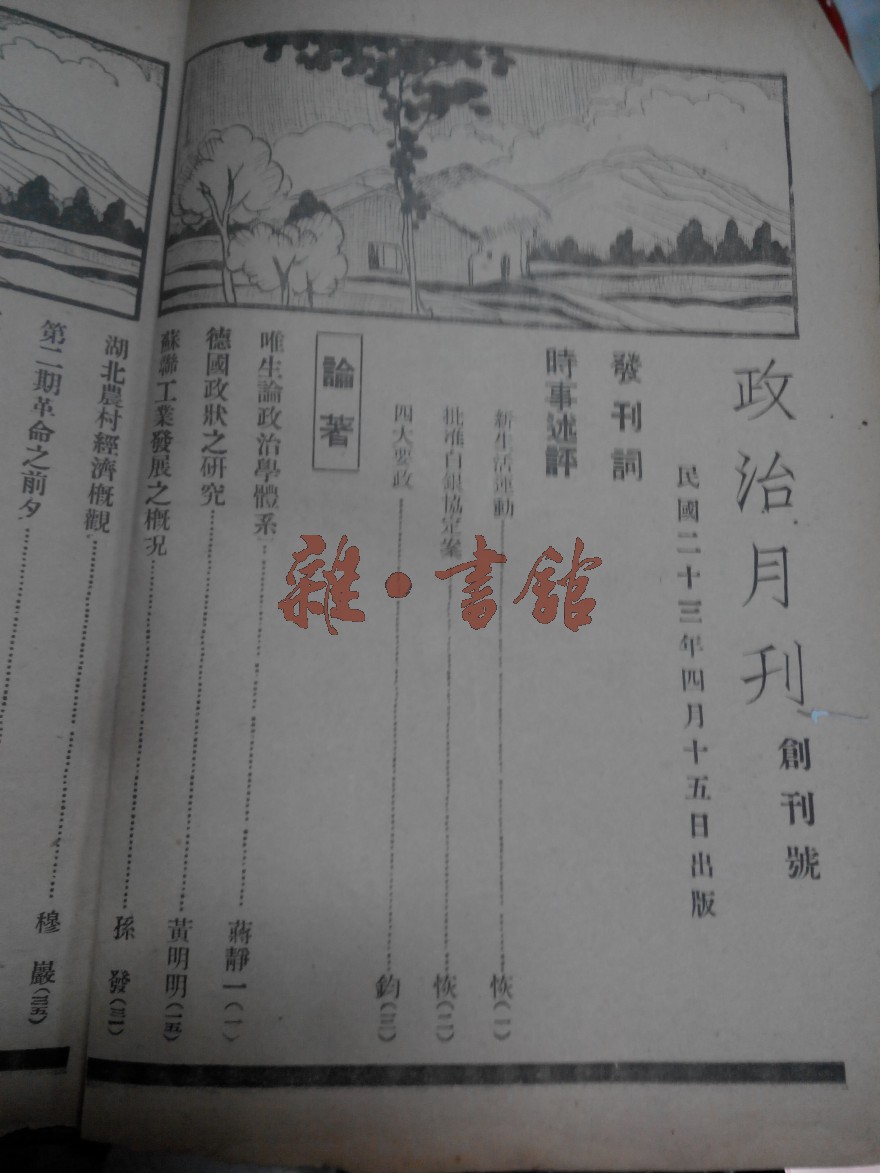 政治月刊 創刊號
民國二十三年四月十五日出版
發刊詞
時事述評
新生活運動……恢(一)
批准白銀協定案……恢(二)
四大要政……鈞(三)
論著
唯生論政治學體系……蔣靜一(一)
德國政狀之研究……黃明明(一五)
蘇聯工業發展之概況……孫 發(三一)
湖北農村經濟概觀……穆 巖(三五)
第二期革命之前夕……
雜·書館